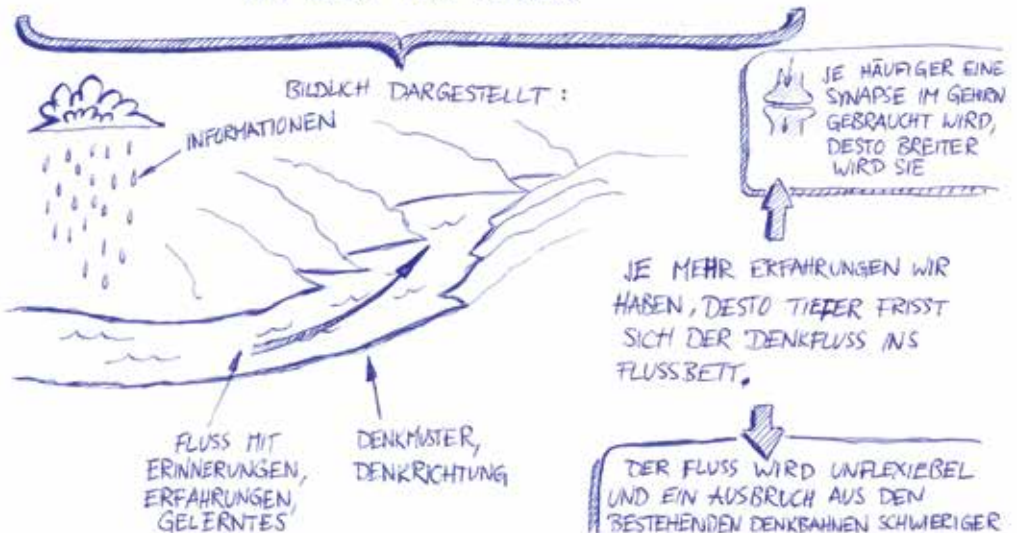 BILDLICH DARGESTELLT :
INFORMATIONEN
JE HÄUFIGER EINE
SYNAPSE IM GEHRN
GEBRAUCHT WIRD,
DESTO BREITER
WIRD SIE
JE MEHR ERFAHRUNGEN WIR
HABEN, DESTO TIEFER FRISST
SICH DER DENKFLUSS INS
FLUSSBETT.
FLUSS MIT
ERINNERUNGEN,
ERFAHRUNGEN,
GELERNTES
DENKMUSTER,
DENKRICHTUNG
DER FLUSS WIRD UNFLEXIEBEL
UND EIN AUSBRUCH AUS DEN
BESTEHENDEN DENKBAHNEN SCHWIERIGER